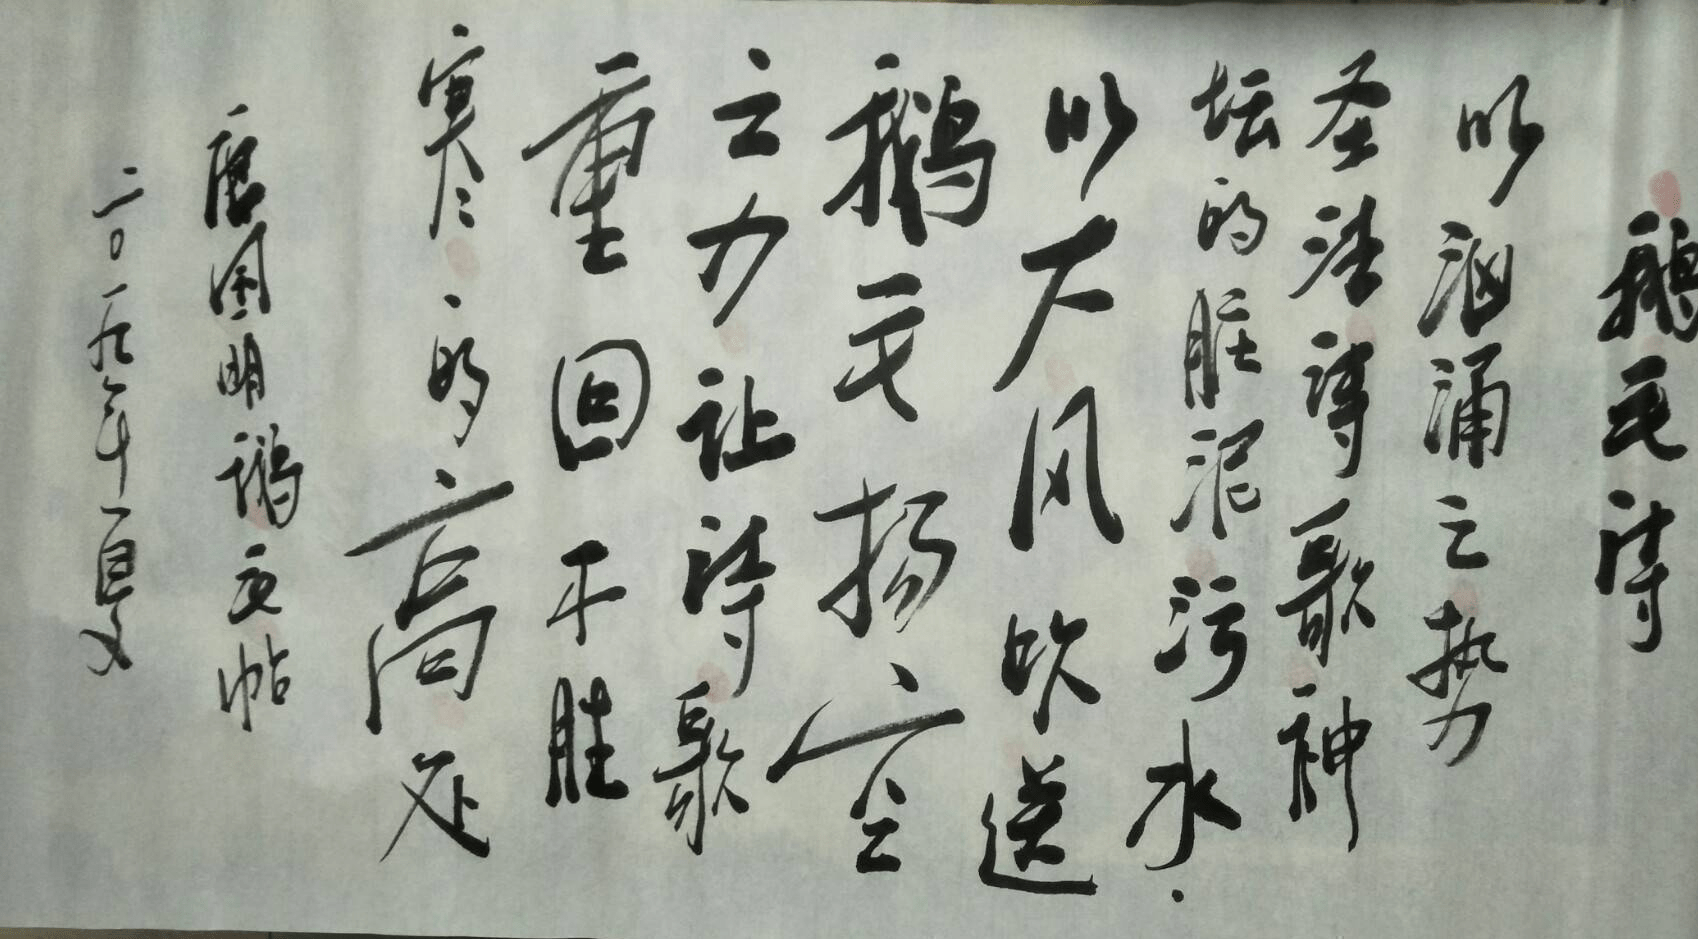 鹅毛诗
以汹涌之势
圣洁诗歌神
坛的脏泥污水.
以大风吹送
鹅毛扬空
之力让诗歌
重回不胜
寒的高处
唐国明鹅毛帖
二0一九年夏